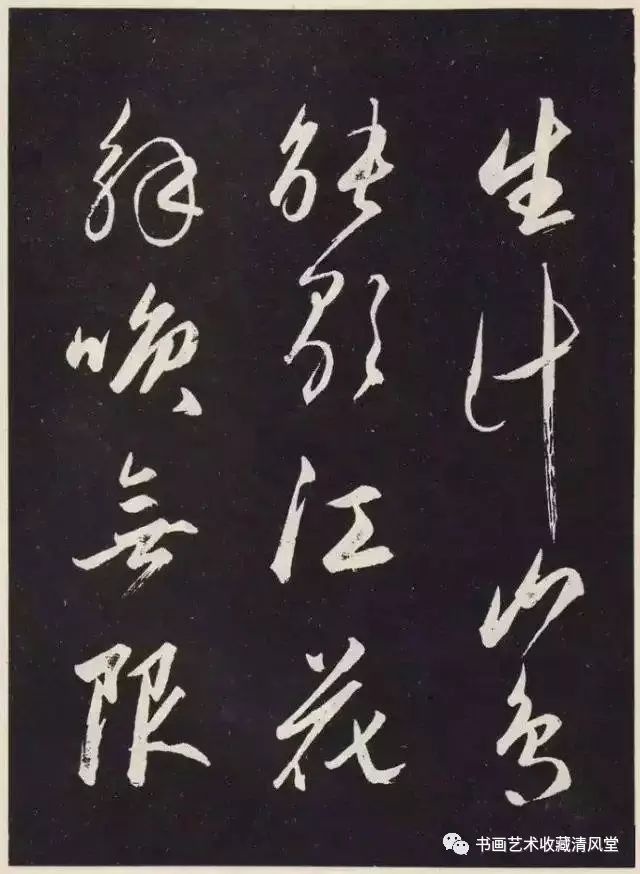 生計山鳥
能歌江花
解喚無限
书画艺术收藏清风堂